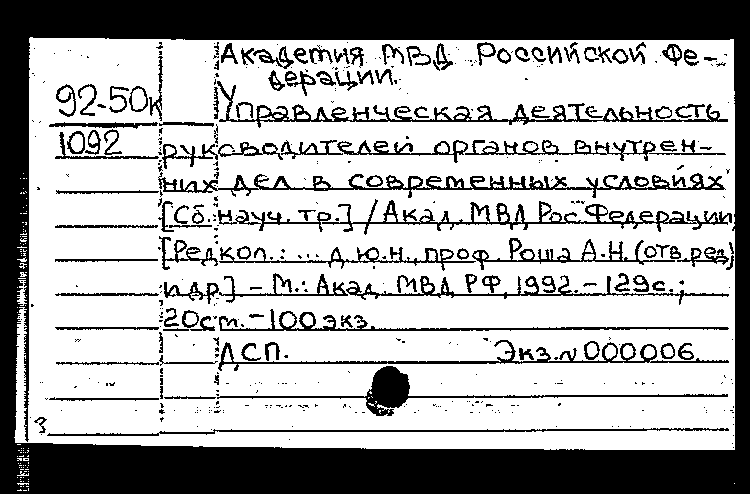 Академия МВД Российской Фе-
дерации.
92-50к
Управленческая деятельность
1092
руководителей органов внутрен-
них дел в современных условиях
[Сб. науч. тр.] / Акад. МВД Рос. Федерации
[Редкол.: ... д.ю.н., проф. Роша А.Н. (отв. ред)
и др.] - М.: Акад. МВД РФ, 1992. - 129с.;
20см. - 100 экз.
ДСП. Экз. N 000006.
3